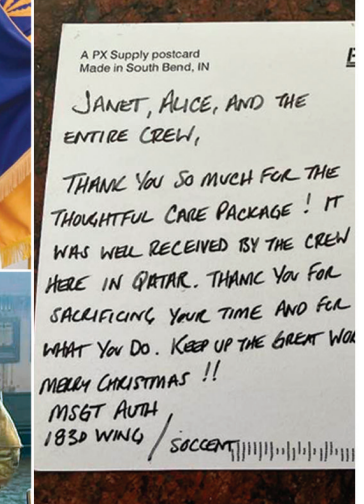 A PX Supply postcard
Made in South Bend, IN
JANET, ALICE, AND THE
ENTIRE CREW,
THANK YOU SO MUCH FOR THE
THOUGHTFUL CARE PACKAGE! IT
WAS WELL RECEIVED BY THE CREW
HERE IN QATAR. THANK YOU FOR
SACRIFICING YOUR TIME AND FOR
WHAT YOU DO. KEEP UP THE GREAT WOR
MERRY CHRISTMAS!!
MSGT AUTH
183D WING / SOCCENT